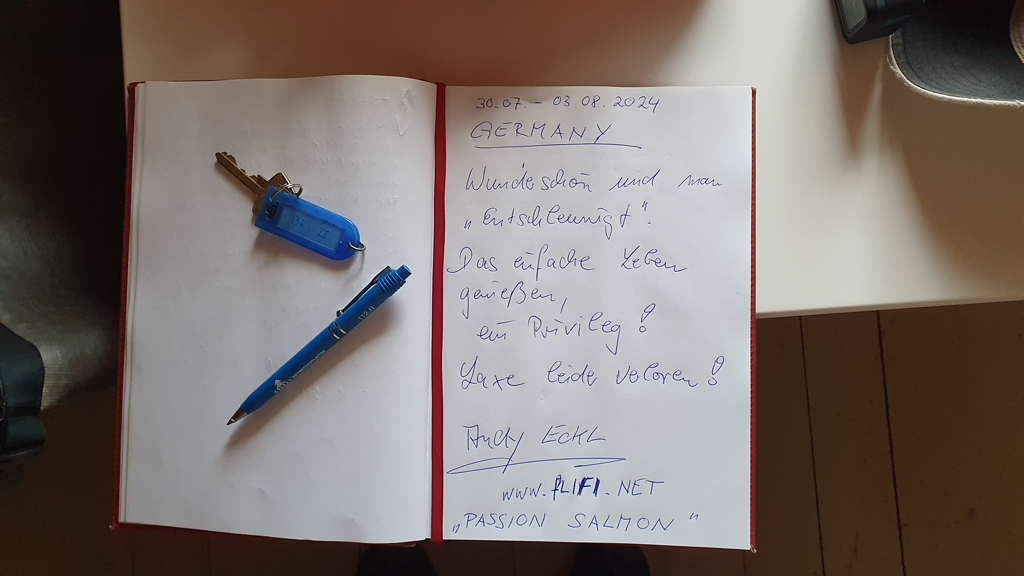 30.07. - 03.08.2024
GERMANY
Wunderschön und man
„Entschleunigt".
Das einfache Leben
genießen,
ein Privileg!
Laxe leider verloren!
Andy ECKL
www.fLIFI.NET
„PASSION SALMON"